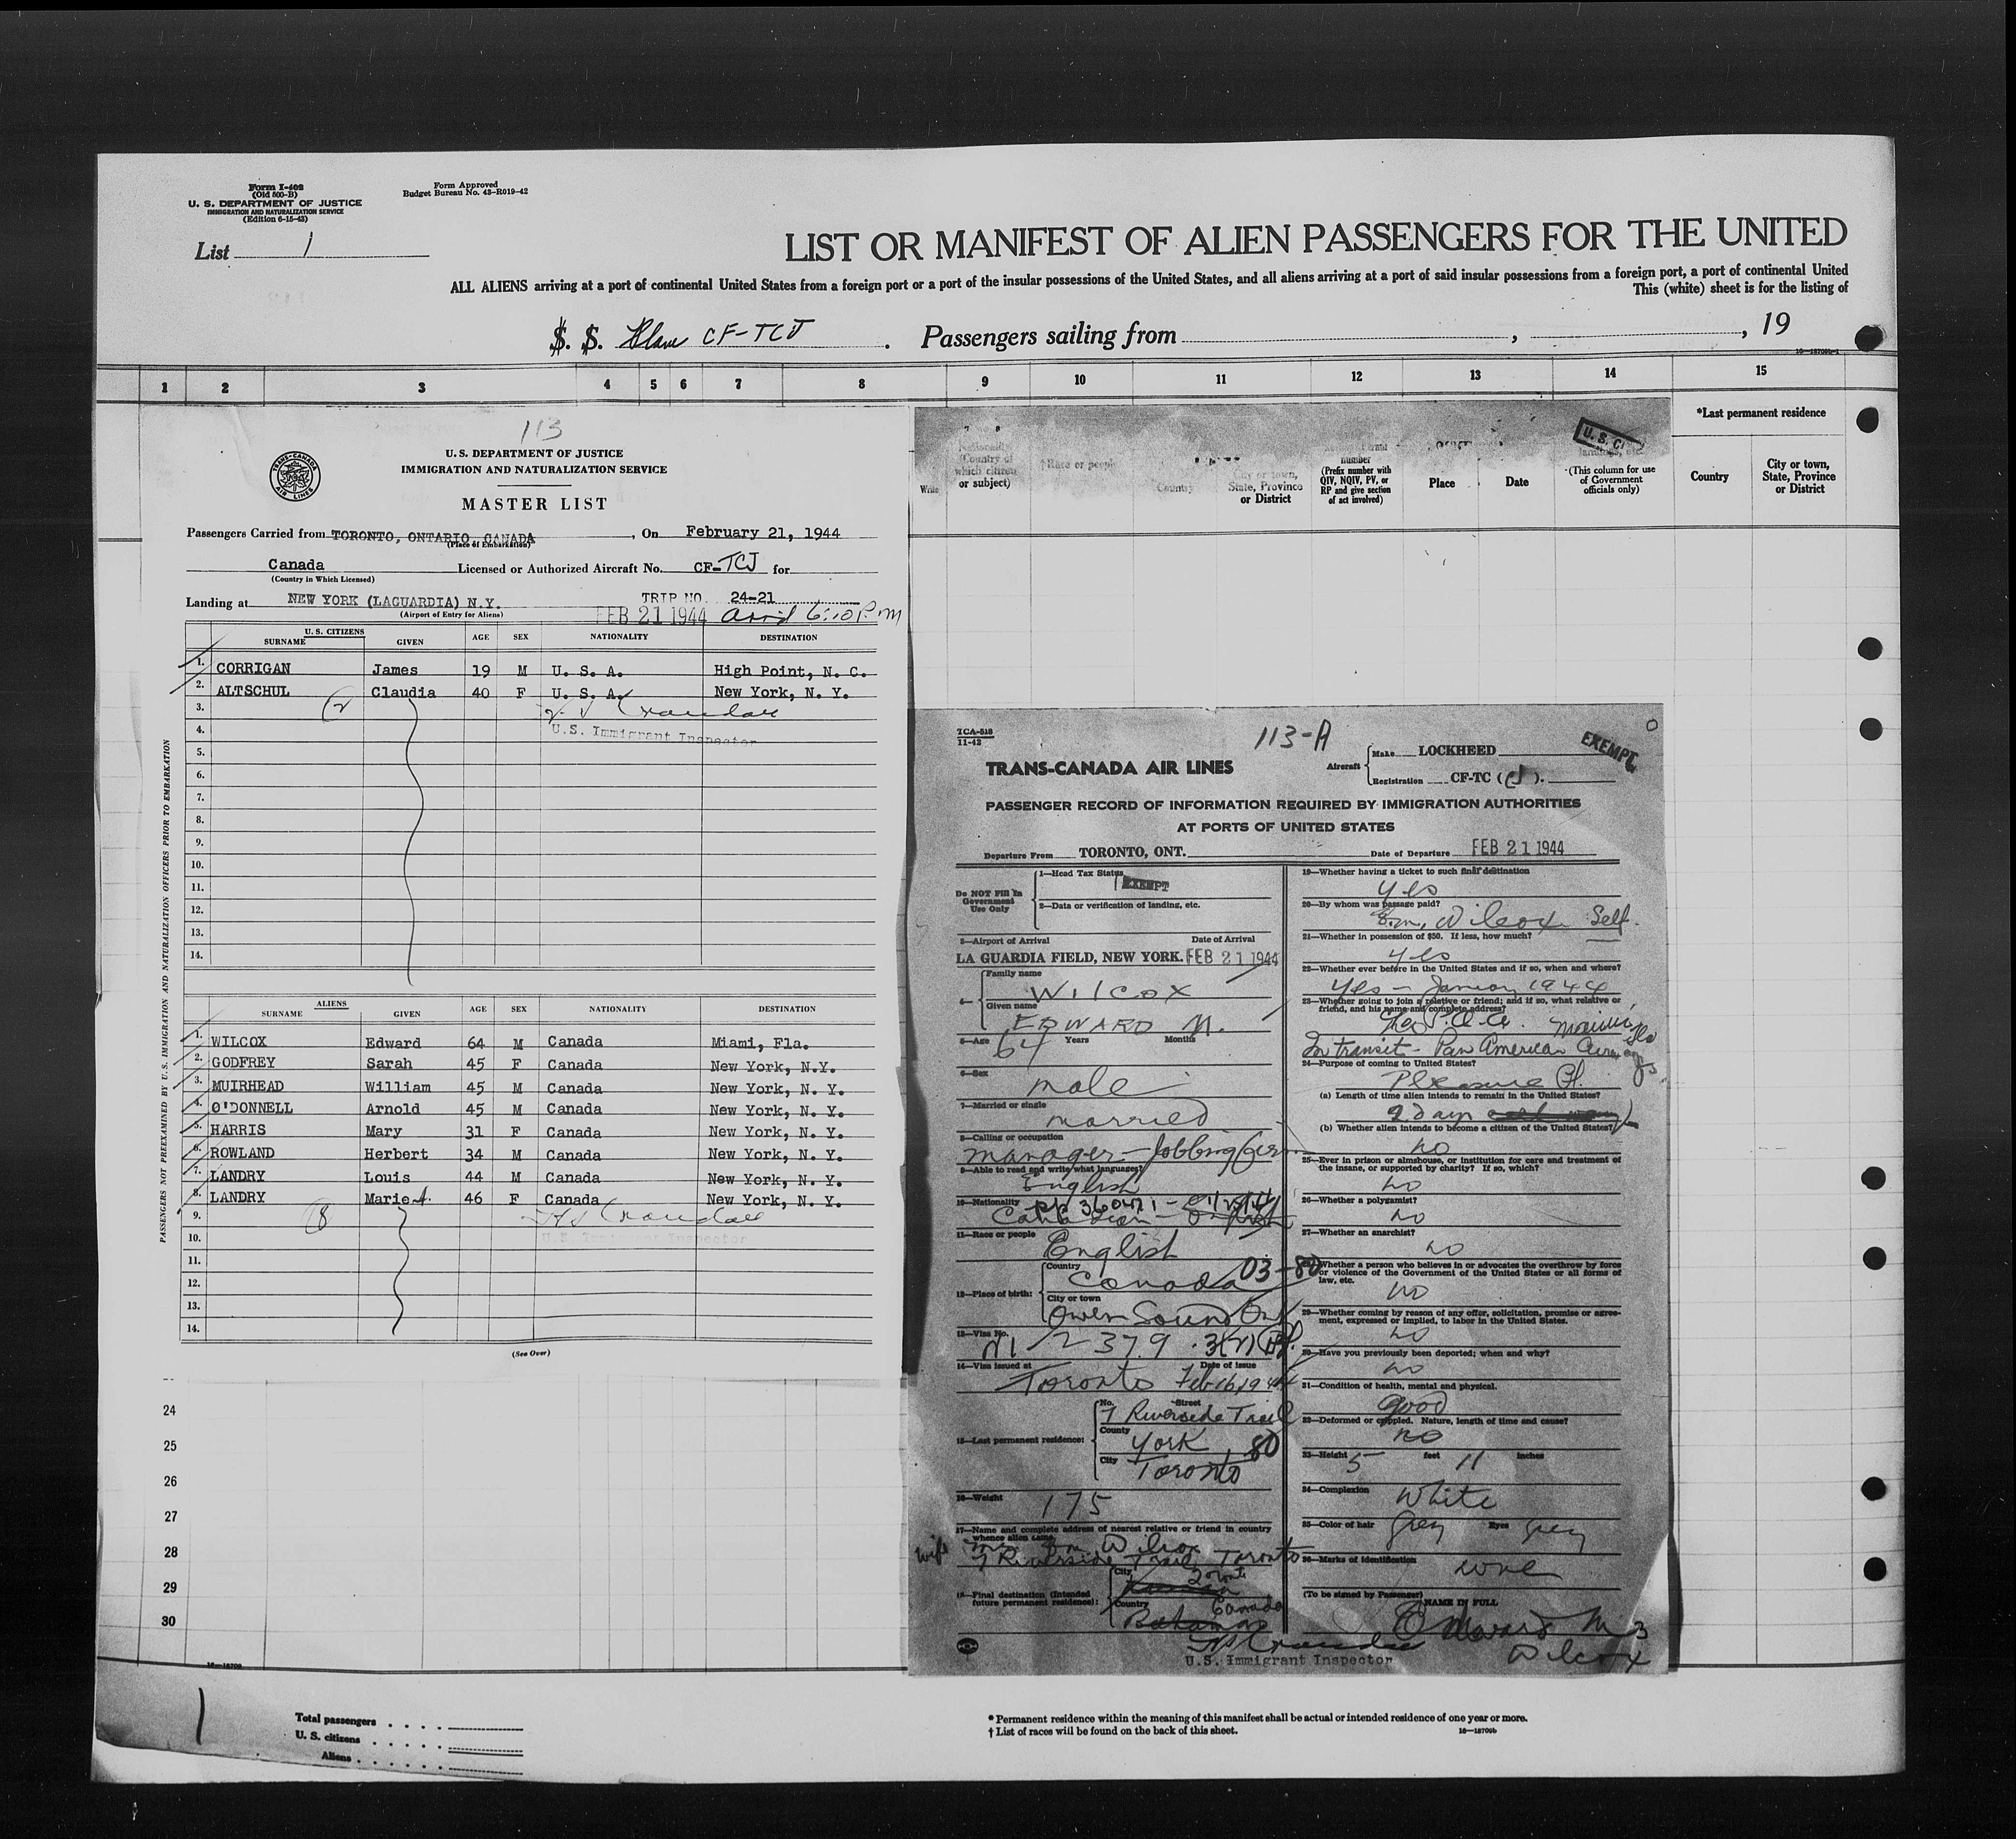 Form I-402
(Old 500-B)
U. S. DEPARTMENT OF JUSTICE
IMMIGRATION AND NATURALIZATION SERVICE
(Edition 6-15-43)
Form Approved
Budget Bureau No. 43-R019-42
List 1
LIST OR MANIFEST OF ALIEN PASSENGERS FOR THE UNITED
ALL ALIENS arriving at a port of continental United States from a foreign port or a port of the insular possessions of the United States, and all aliens arriving at a port of said insular possessions from a foreign port, a port of continental United
This (white) sheet is for the listing of
S. S. Plane CF-TCJ . Passengers sailing from , , 19
1 2 3 4 5 6 7 8 9 10 11 12 13 14 15
113
TRANS-CANADA AIR LINES
U. S. DEPARTMENT OF JUSTICE
IMMIGRATION AND NATURALIZATION SERVICE
MASTER LIST
Passengers Carried from TORONTO, ONTARIO, CANADA, On February 21, 1944
(Place of Embarkation)
Canada Licensed or Authorized Aircraft No. CF-TCJ for
(Country in Which Licensed)
TRIP NO. 24-21
Landing at NEW YORK (LAGUARDIA) N.Y.
(Airport of Entry for Aliens)
FEB 21 1944 arrd 6:10 P.m
U.S. CITIZENS
SURNAME GIVEN AGE SEX NATIONALITY DESTINATION
1. CORRIGAN James 19 M U. S. A. High Point, N. C.
2. ALTSCHUL Claudia 40 F U. S. A. New York, N. Y.
3. (2) Crandall
4. U.S. Immigrant Inspector
5.
6.
7.
8.
9.
10.
11.
12.
13.
14.
PASSENGERS NOT PREEXAMINED BY U. S. IMMIGRATION AND NATURALIZATION OFFICERS PRIOR TO EMBARKATION
ALIENS
SURNAME GIVEN AGE SEX NATIONALITY DESTINATION
1. WILCOX Edward 64 M Canada Miami, Fla.
2. GODFREY Sarah 45 F Canada New York, N.Y.
3. MUIRHEAD William 45 M Canada New York, N. Y.
4. O'DONNELL Arnold 45 M Canada New York, N. Y.
5. HARRIS Mary 31 F Canada New York, N. Y.
6. ROWLAND Herbert 34 M Canada New York, N. Y.
7. LANDRY Louis 44 M Canada New York, N. Y.
8. LANDRY Marie A. 46 F Canada New York, N. Y.
9. (8) Crandall
10. U.S. Immigrant Inspector
11.
12.
13.
14.
(See Over)
24
25
26
27
28
29
30
16—18709
1
Total passengers
U. S. citizens
Aliens
Nationality
(Country of
which citizen
or subject)
†Race or people
Country
City or town,
State, Province
or District
number
(Prefix number with
QIV, NQIV, PV, or
RP and give section
of act involved)
Place
Date
(This column for use
of Government
officials only)
*Last permanent residence
Country
City or town,
State, Province
or District
TCA-518
11-42
113-A
TRANS-CANADA AIR LINES
Aircraft Make LOCKHEED
Registration CF-TC (J).
EXEMPT
PASSENGER RECORD OF INFORMATION REQUIRED BY IMMIGRATION AUTHORITIES
AT PORTS OF UNITED STATES
Departure From TORONTO, ONT. Date of Departure FEB 21 1944
Do NOT Fill in
Government
Use Only
1—Head Tax Status EXEMPT
2—Data or verification of landing, etc.
3—Airport of Arrival Date of Arrival
LA GUARDIA FIELD, NEW YORK. FEB 21 1944
4— Family name WILCOX
Given name EDWARD M.
5—Age 64 Years Months
6—Sex male
7—Married or single married
8—Calling or occupation
manager - Jobbing
9—Able to read and write/what languages?
English
10—Nationality
Canadian
11—Race or people English
12—Place of birth: Country Canada 03-80
City or town Owen Sound Ont
13—Visa No. 2379 3(2)
14—Visa issued at Date of issue
Toronto Feb 16, 1944
15—Last permanent residence: No. Street
7 Riverside Trail
County York 80
City Toronto
16—Weight 175
17—Name and complete address of nearest relative or friend in country
whence alien came
wife Mrs E.M. Wilcox
7 Riverside Trail Toronto
18—Final destination (Intended
future permanent residence): City Toronto
Country Canada
Bahamas
Crandall
U.S. Immigrant Inspector
19—Whether having a ticket to such final destination
Yes
20—By whom was passage paid?
E.M. Wilcox Self.
21—Whether in possession of $50. If less, how much?
Yes
22—Whether ever before in the United States and if so, when and where?
Yes - January 1944
23—Whether going to join a relative or friend; and if so, what relative or
friend, and his name and complete address?
In transit - Pan American Airways.
24—Purpose of coming to United States?
Pleasure
(a) Length of time alien intends to remain in the United States?
2 days
(b) Whether alien intends to become a citizen of the United States?
no
25—Ever in prison or almshouse, or institution for care and treatment of
the insane, or supported by charity? If so, which?
no
26—Whether a polygamist?
no
27—Whether an anarchist?
no
Whether a person who believes in or advocates the overthrow by force
or violence of the Government of the United States or all forms of
law, etc.
no
29—Whether coming by reason of any offer, solicitation, promise or agree-
ment, expressed or implied, to labor in the United States.
no
30—Have you previously been deported; when and why?
no
31—Condition of health, mental and physical.
good
32—Deformed or crippled. Nature, length of time and cause?
no
33—Height 5 feet 11 inches
34—Complexion White
35—Color of hair Grey Eyes Grey
36—Marks of Identification none
(To be signed by Passenger)
NAME IN FULL
Edward M
Wilcox
* Permanent residence within the meaning of this manifest shall be actual or intended residence of one year or more.
† List of races will be found on the back of this sheet.
16—18709b